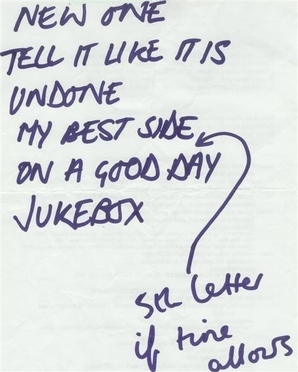 NEW ONE
TELL IT LIKE IT IS
UNDONE
MY BEST SIDE
ON A GOOD DAY
JUKEBOX
letter
if time
allows